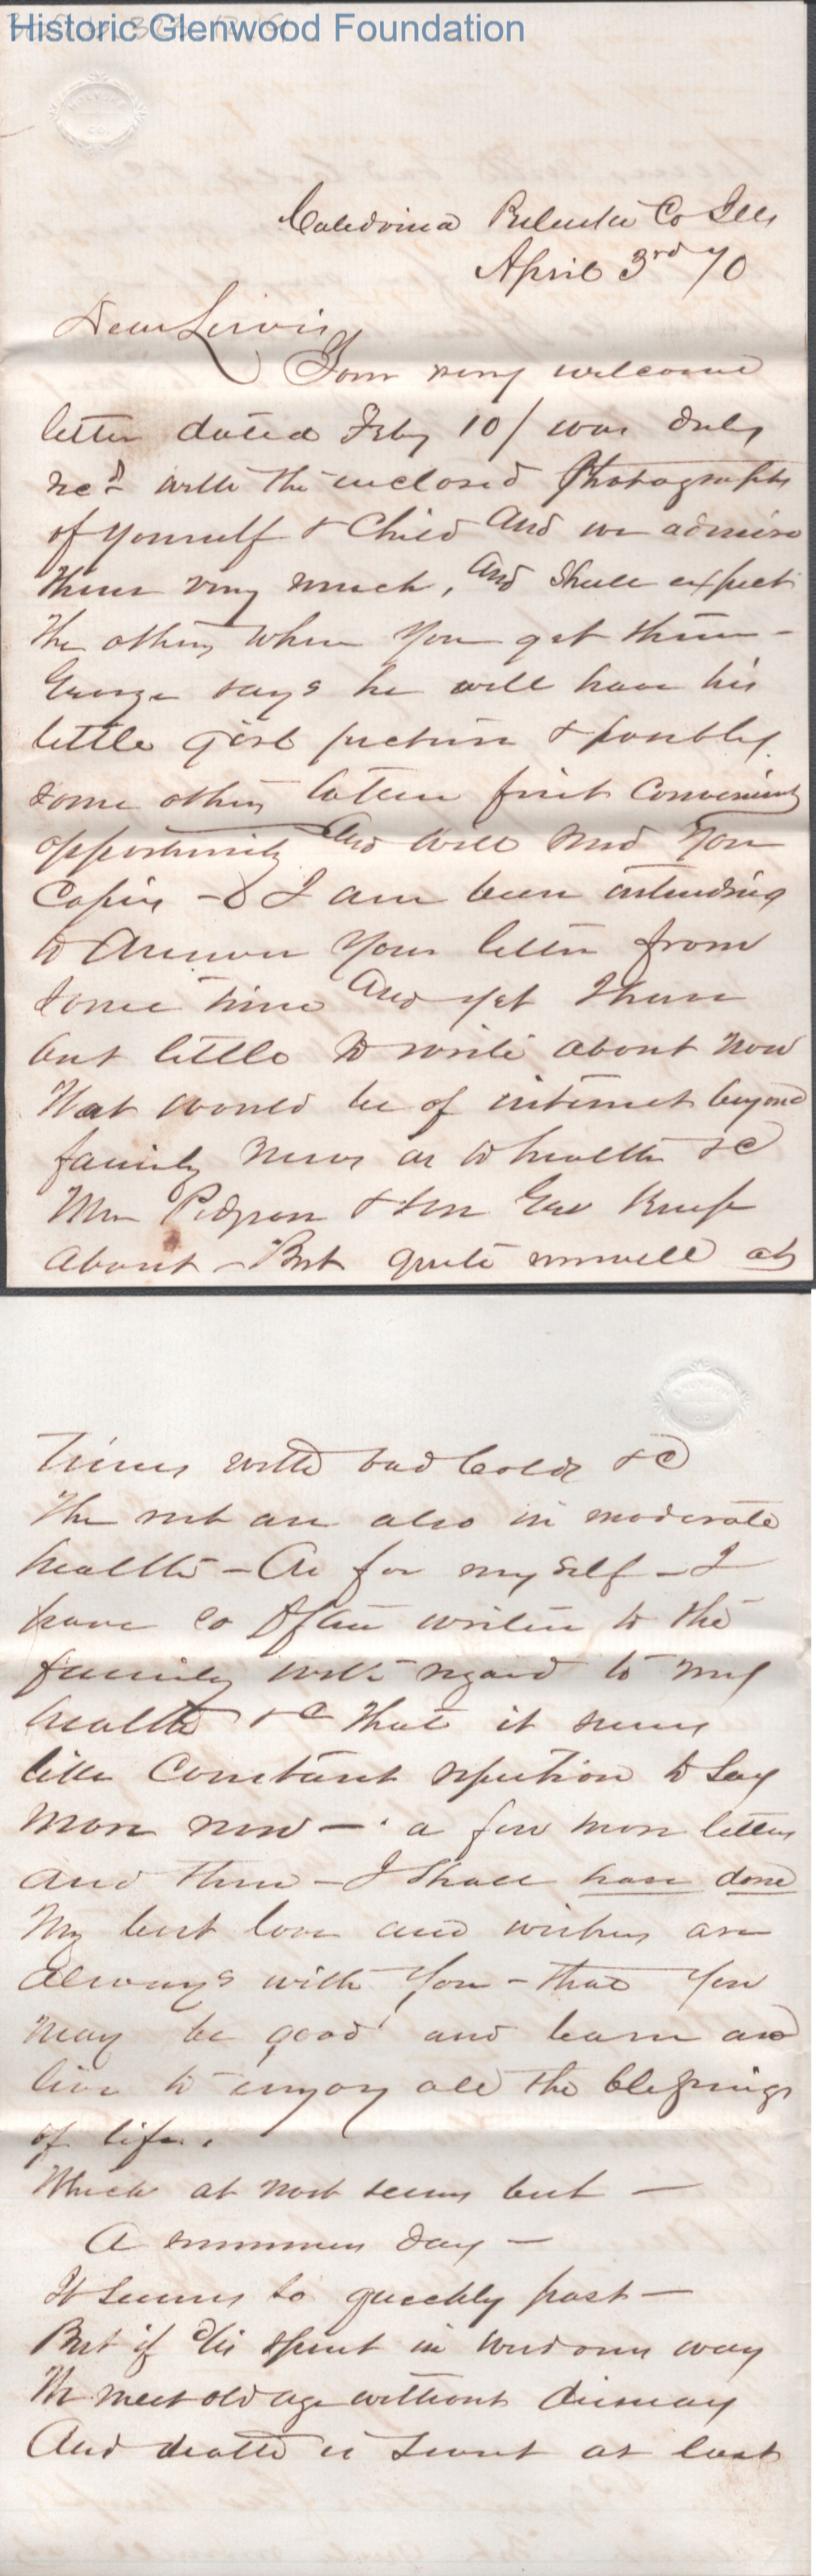 Historic Glenwood Foundation
Caledonia Co Ills
April 3rd 70
Dear Lewis
Your very welcome
letter dated Feby 10/ was duly
recd with the inclosed Photographs
of yourself & Child and we admire
them very much, and shall expect
the others when you get them -
George says he will have his
little girl picture & possibly
some others taken first convenient
opportunity and will send you
Copies - I am been intending
to answer your letter from
some time and yet I have
but little to write about now
that would be of interest beyond
family news as to health &c
Mrs Pidgeon & son Geo keep
about - But quite unwell at
times with bad Colds &c
The rest are also in moderate
health - As for my self - I
have so often writen to the
family with regard to my
health &c that it seems
like Constant repetition to say
more now - a few more letters
and then - I shall have done
My best love and wishes are
always with you - that you
may be good and learn and
live to enjoy all the blessings
of life.
Which at most seems but -
A summers day -
It seems so quickly past -
But if tis spent in wisdoms way
We meet old age without dismay
And death is sweet at last